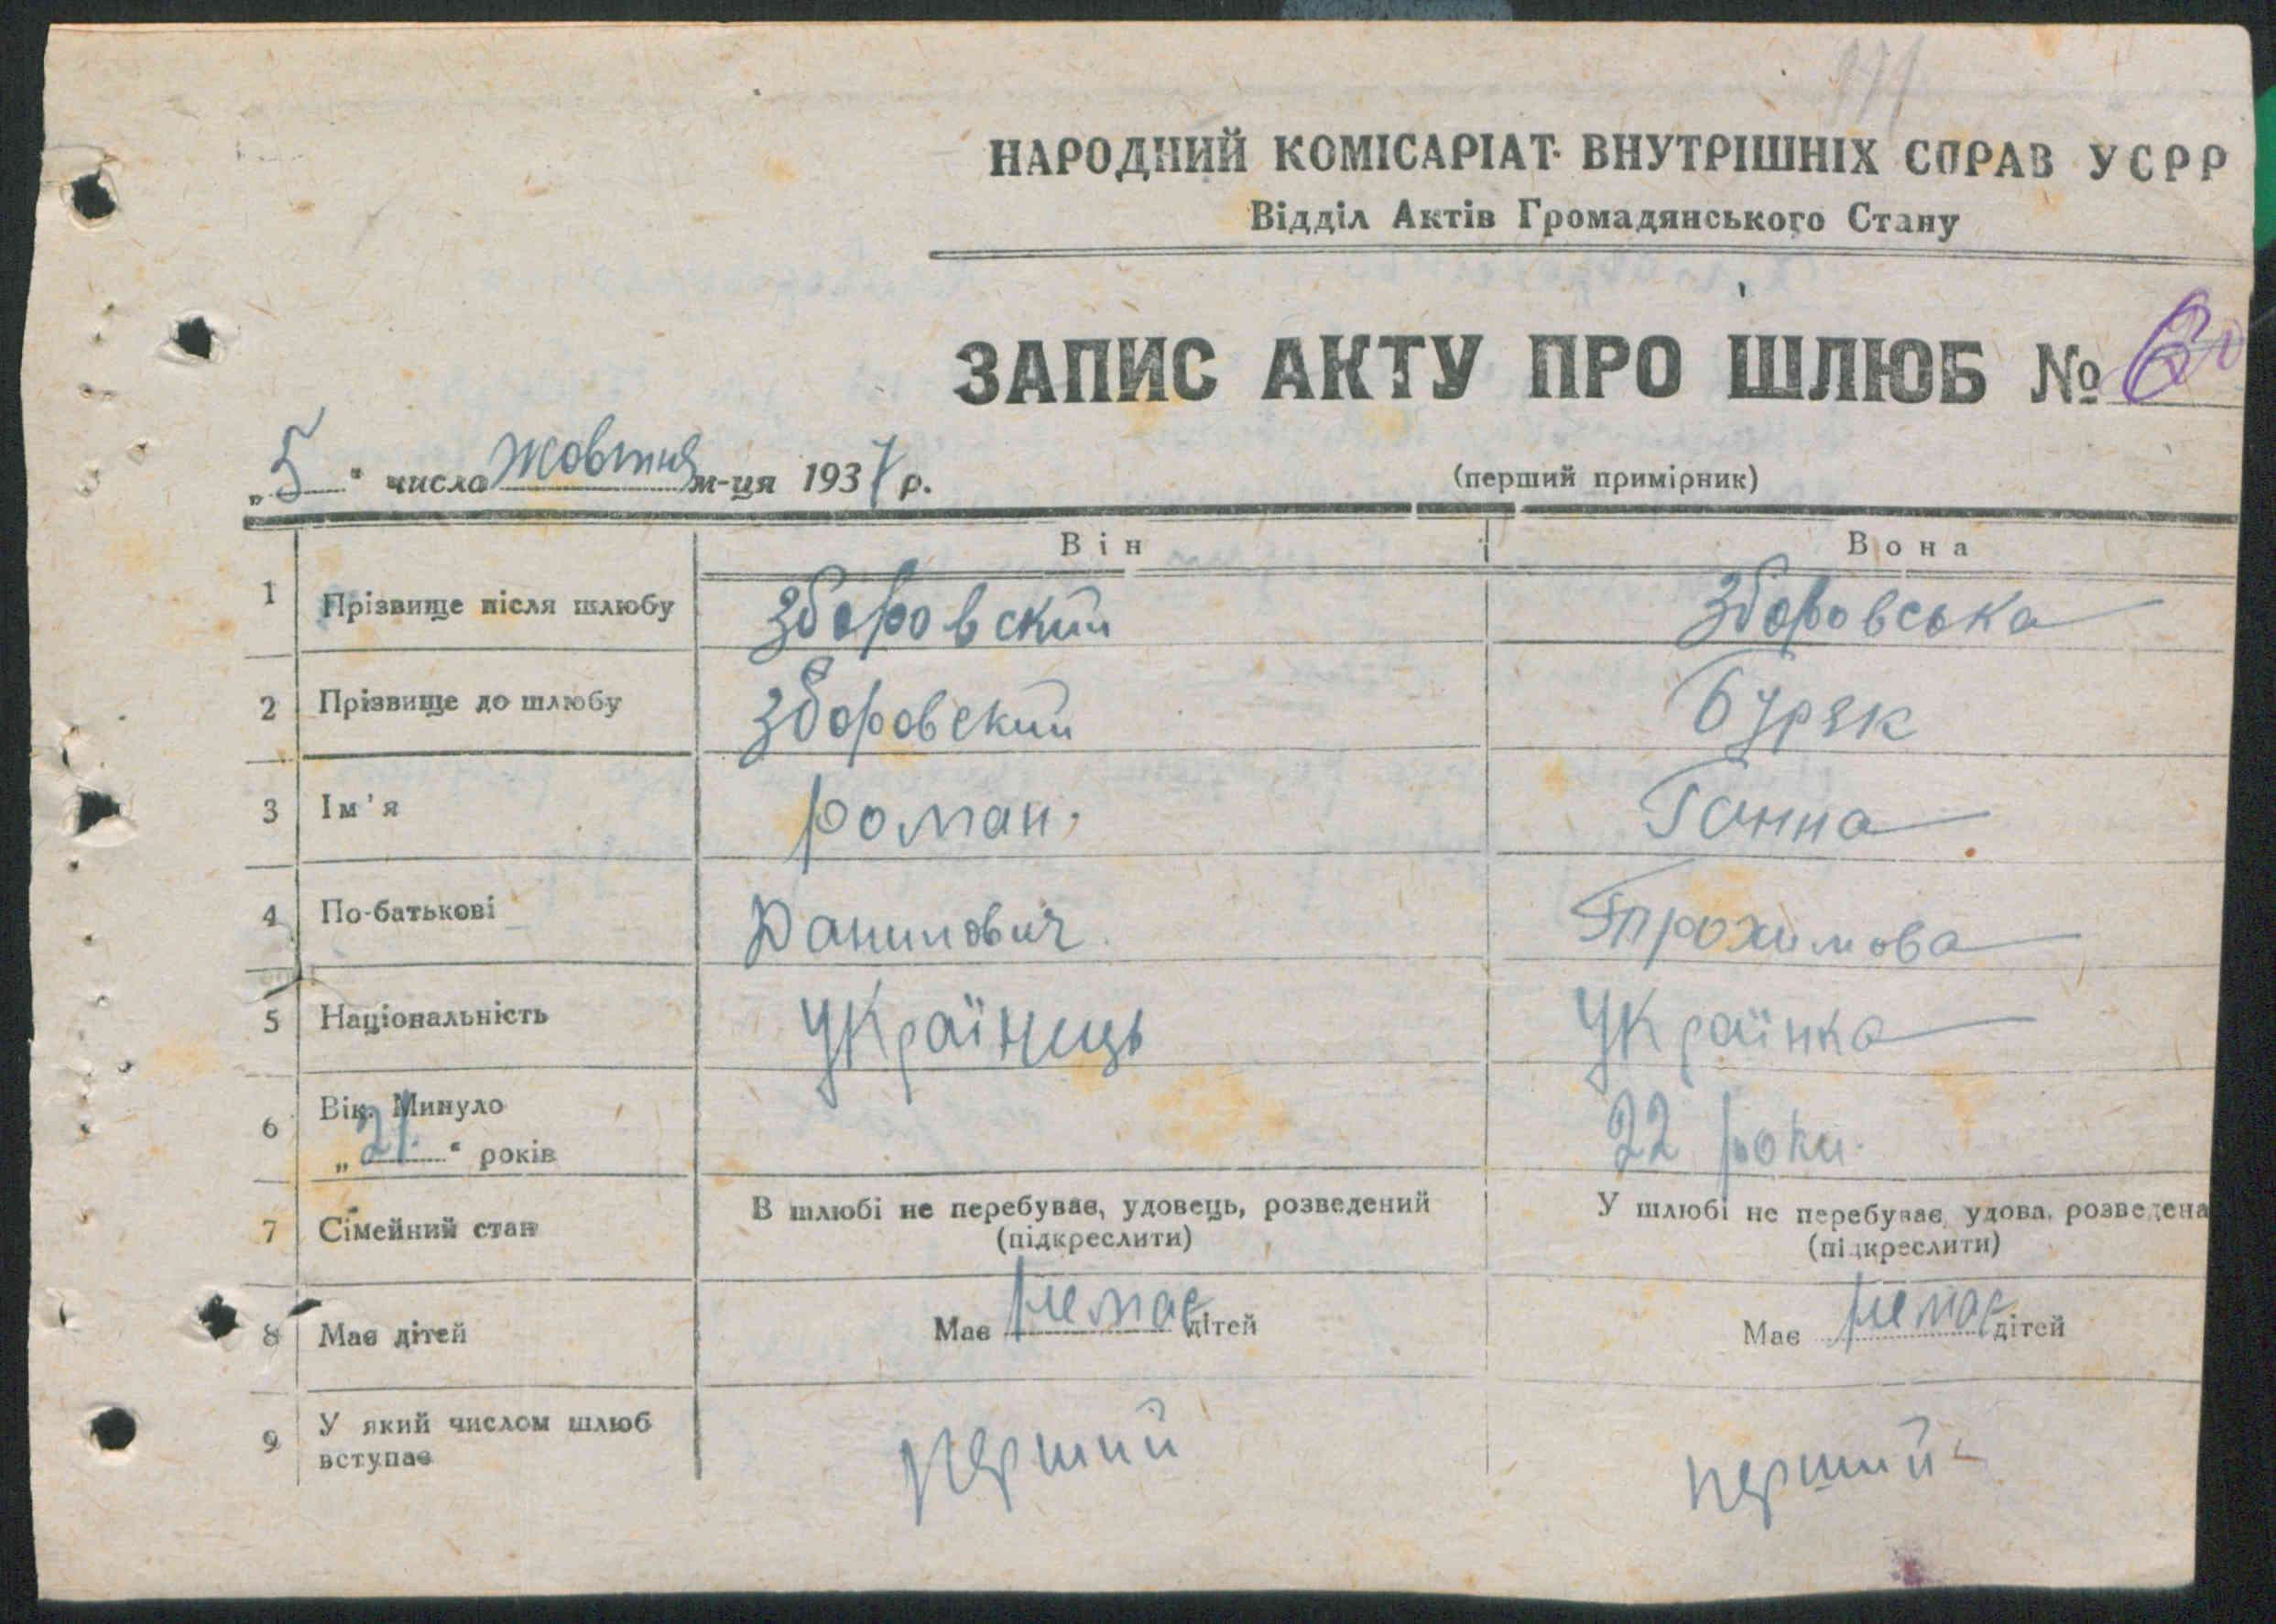 НАРОДНИЙ КОМІСАРІАТ ВНУТРІШНІХ СПРАВ УСРР
Відділ Актів Громадянського Стану
ЗАПИС АКТУ ПРО ШЛЮБ №
„5" числа жовтня м-ця 1937 р.
(перший примірник)
Він Вона
1 Прізвище після шлюбу Зборовский Зборовська
2 Прізвище до шлюбу Зборовский Буряк
3 Ім'я роман. Ганна
4 По-батькові Данилович Трохимова
5 Національність Українець Українка
6 Вік. Минуло
„21." років 22 роки.
7 Сімейний стан В шлюбі не перебуває, удовець, розведений У шлюбі не перебуває, удова, розведена
(підкреслити) (підкреслити)
8 Має дітей Має немає дітей Має немає дітей
9 У який числом шлюб
вступає перший перший